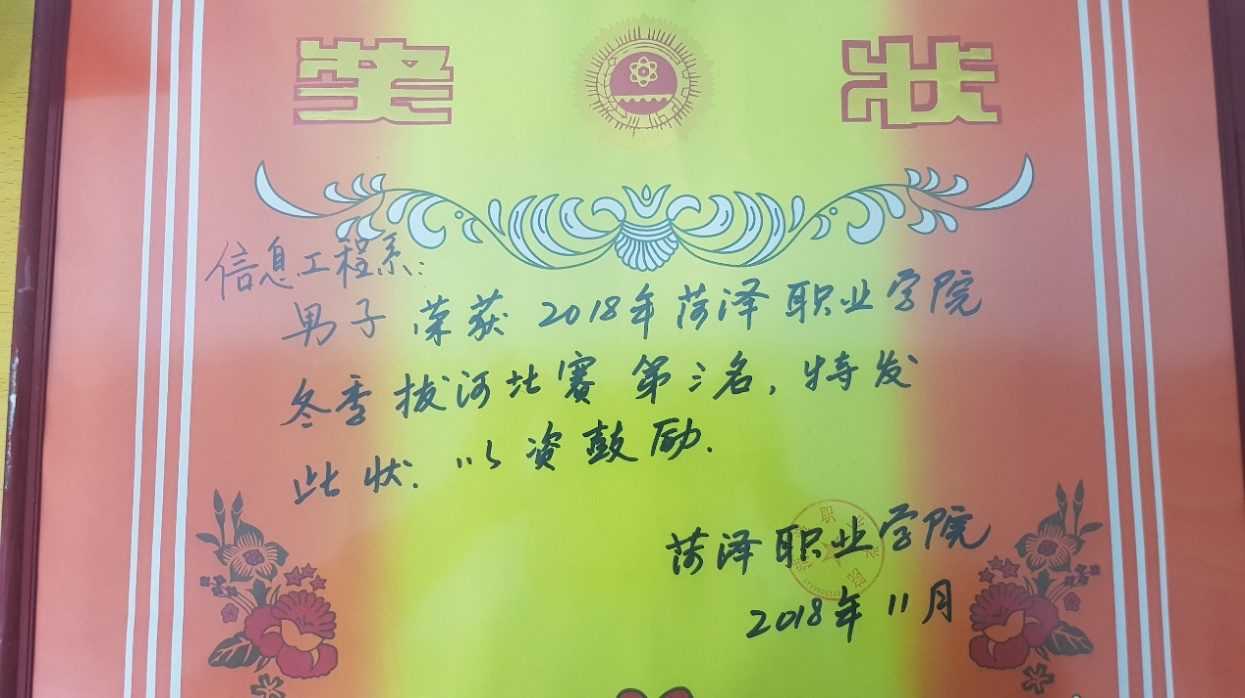 奖状
信息工程系：
男子荣获2018年菏泽职业学院
冬季拔河比赛第三名，特发
此状．以资鼓励．
菏泽职业学院
2018年11月